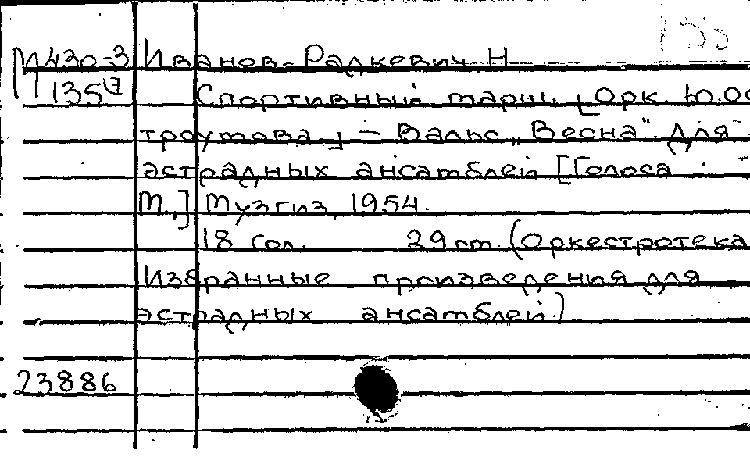 М430-3 Иванов-Радкевич, Н
135
Спортивный марш. [Орк. Ю. Ос
троумова.] – Вальс „Весна“. Для
эстрадных ансамблей [Голоса
М.,] Музгиз, 1954.
18 гол. 29 cm. (Оркестротека
Избранные произведения для
эстрадных ансамблей)
23886